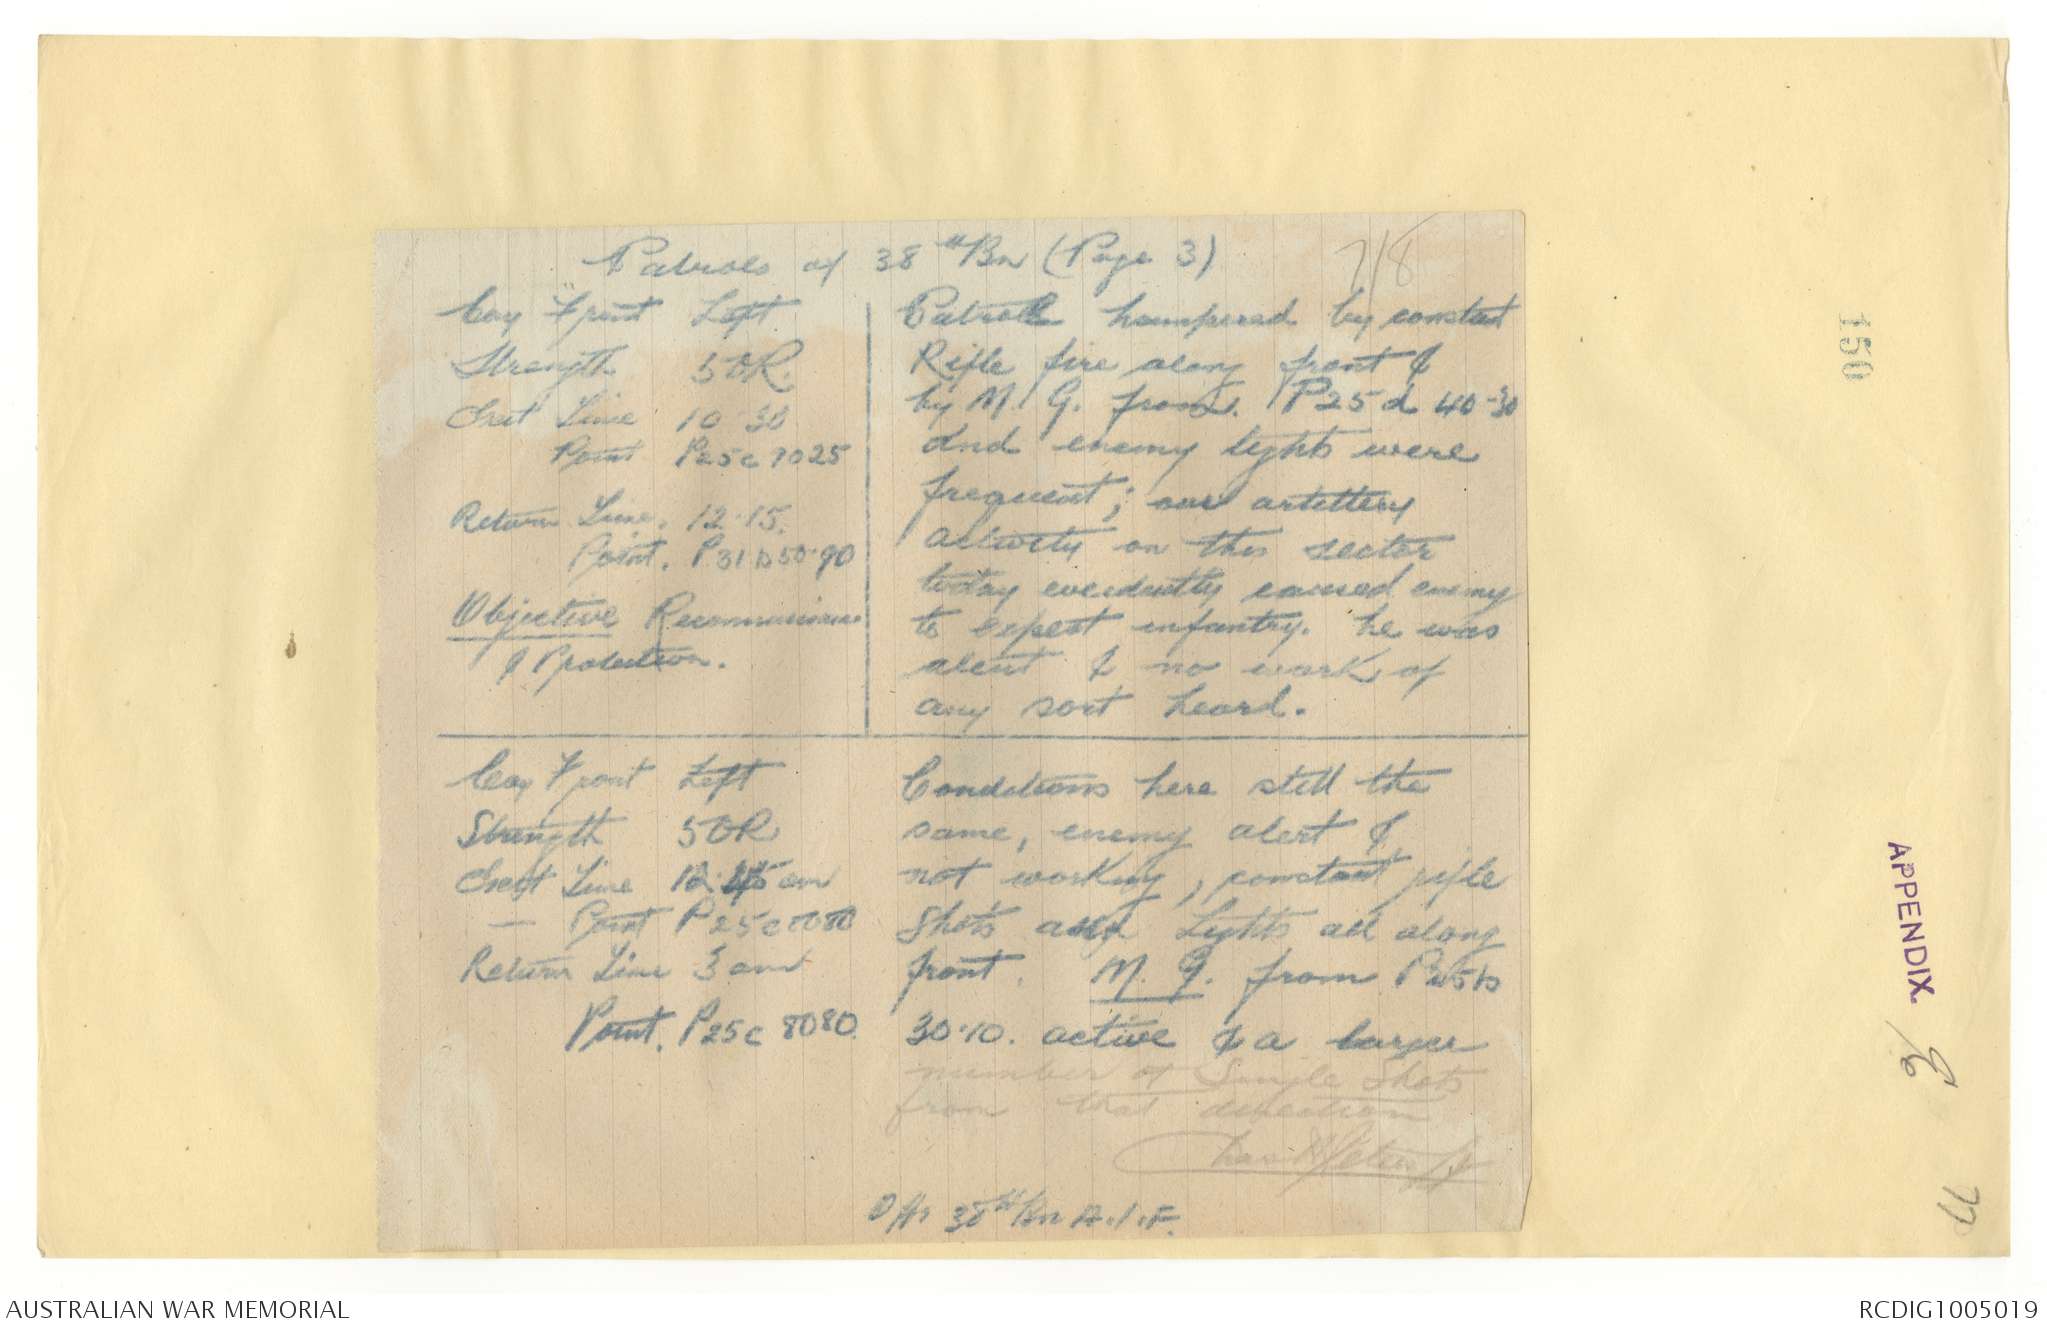 Patrols of 38th Bn (Page 3)
7/8
Coy Front Left
Strength 5 OR.
Exit Time 10.30
Point P25c 7025
Return Time. 12.15.
Point. P31 b 50.90
Objective Reconnaissance
& Protection.
Patrol hampered by constant
Rifle fire along front &
by M. G. from. P25d 40-30
And enemy lights were
frequent; our artillery
activity on this sector
today evidently caused enemy
to expect infantry. he was
alert & no work of
any sort heard.
Coy Front Left
Strength 5 OR
Exit Time 12.45 am
— Point P25c 8080
Return Time 3 am
Point. P25c 8080.
Conditions here still the
same, enemy alert &
not working, constant rifle
shots and Lights all along
front. M. G. from P25b
30.10. active & a larger
number of Single Shots
from that direction
Chas H Peters Lt
Offr 38th Bn A.I.F.
150
APPENDIX
77
AUSTRALIAN WAR MEMORIAL
RCDIG1005019